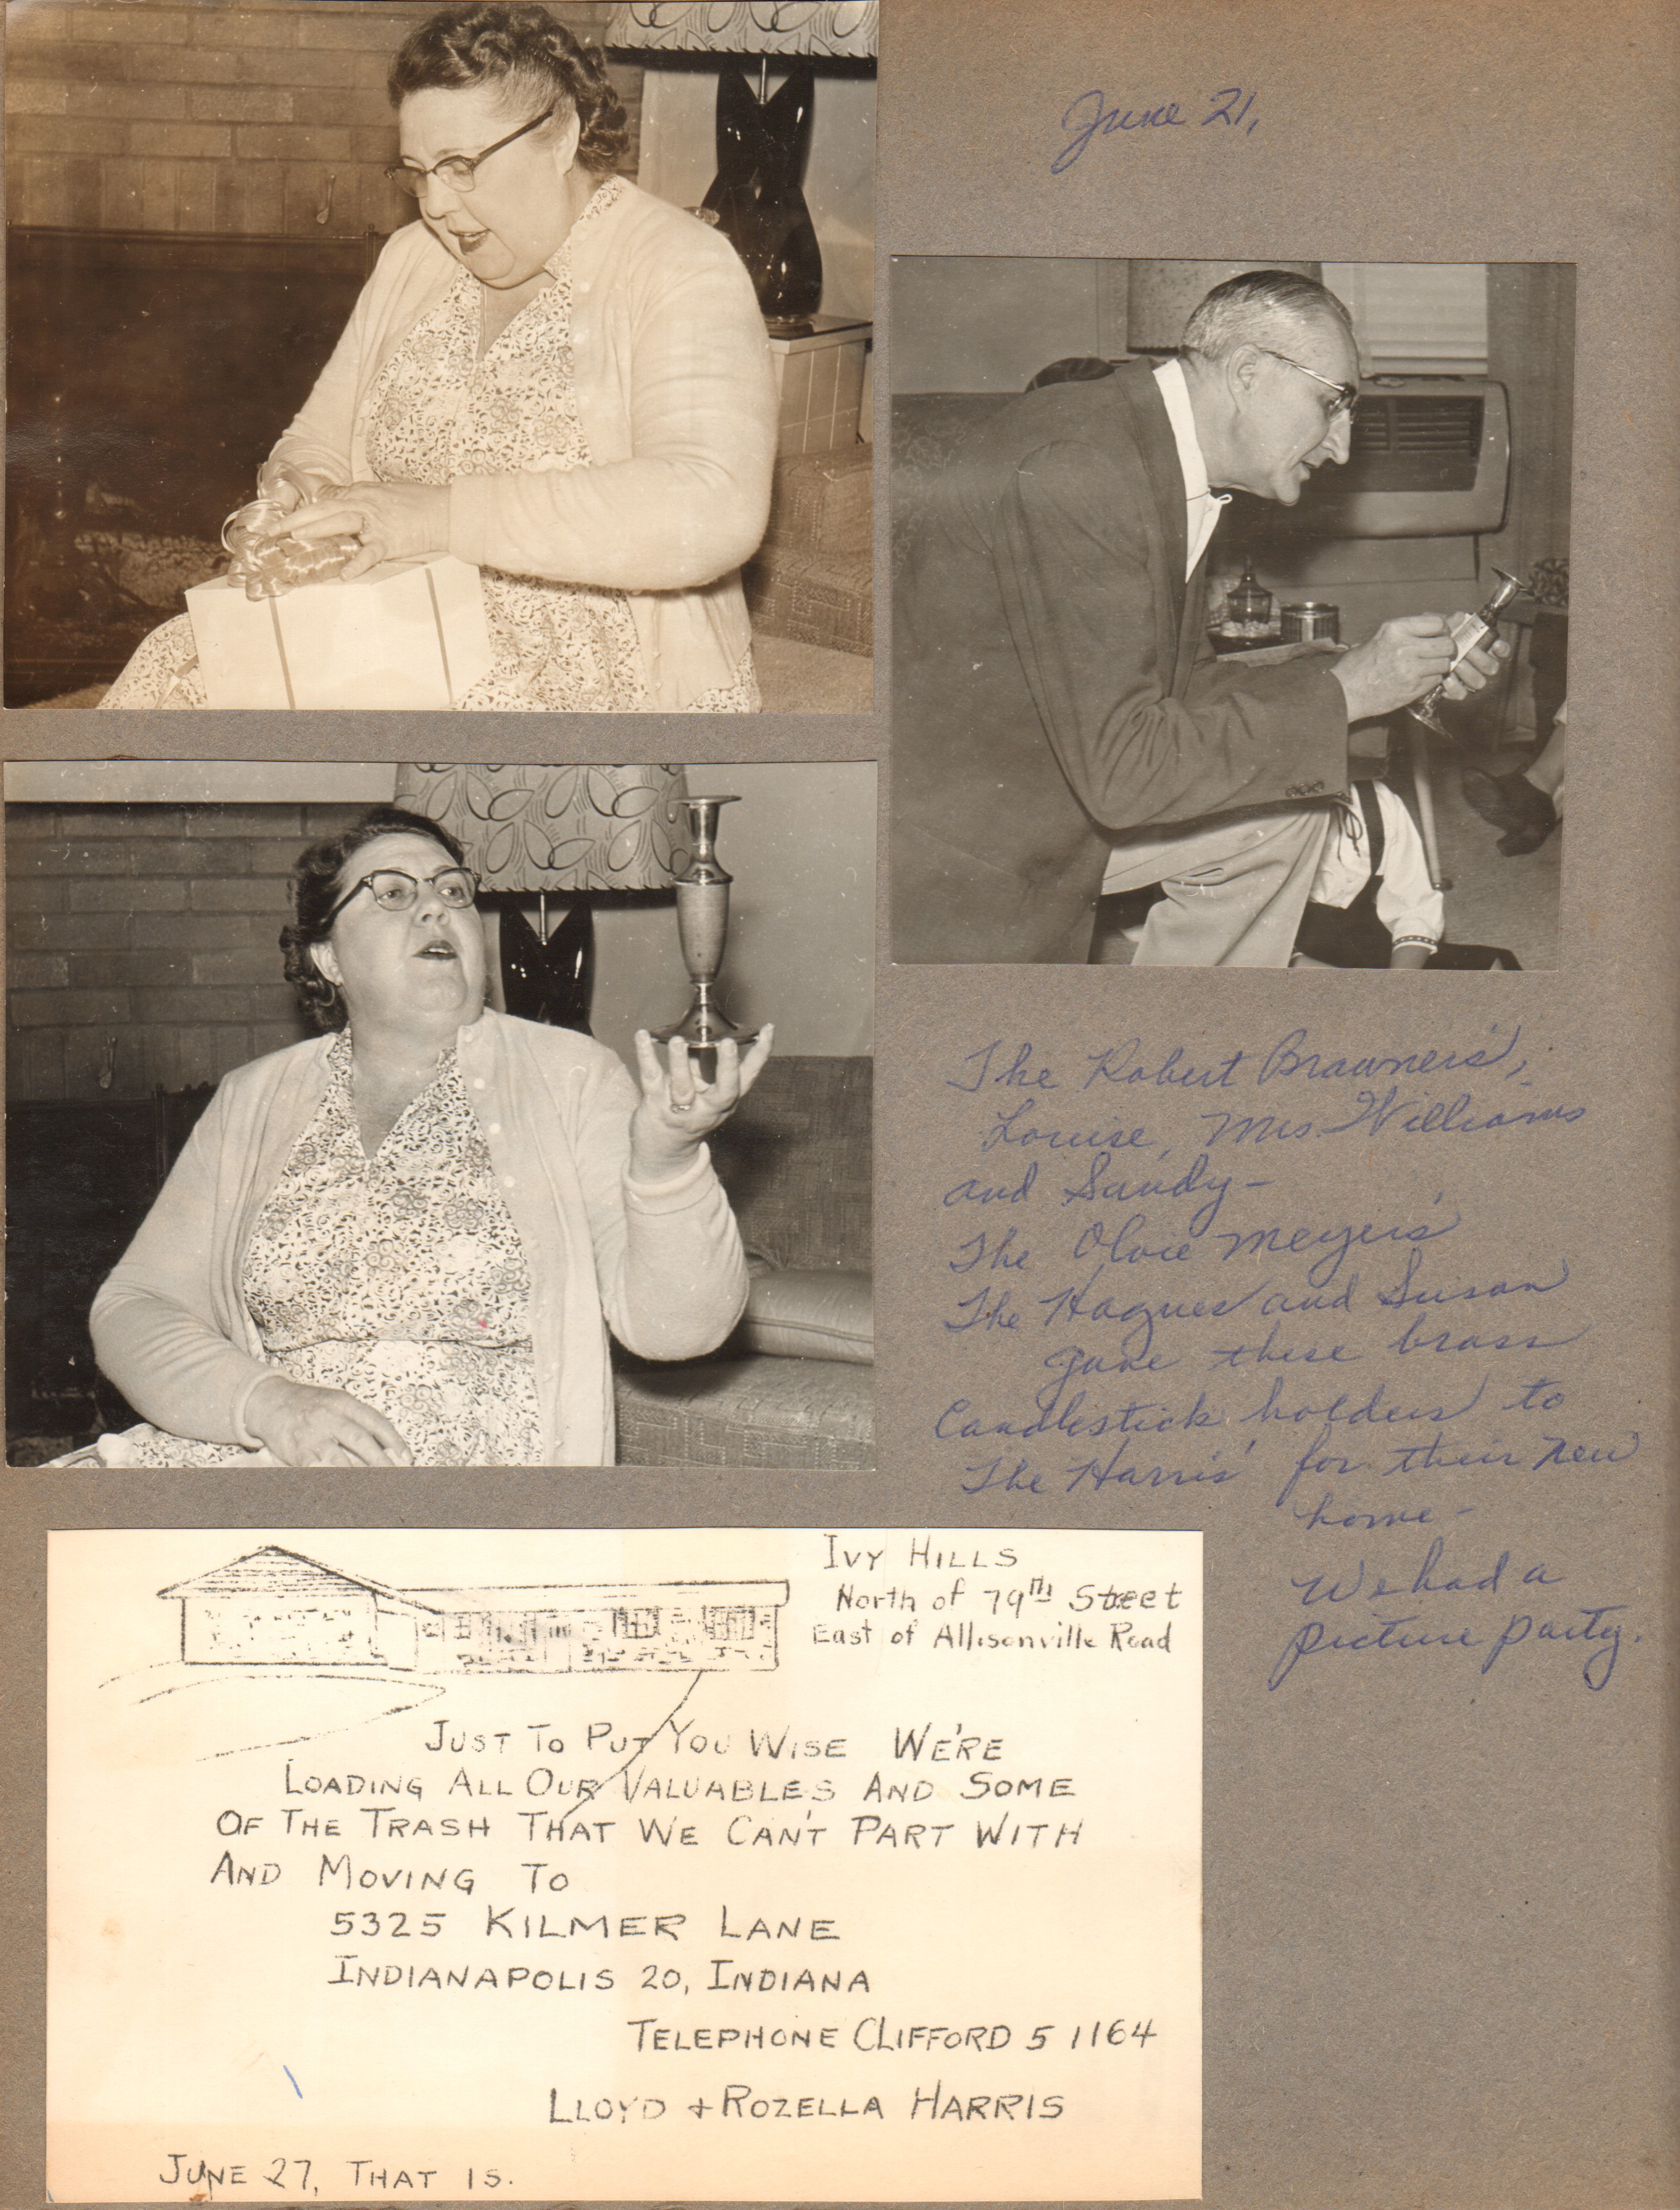 June 21,
The Robert Brawners',
Louise, Mrs. Williams
and Sandy-
The Olvie Meyers'
The Hagues and Susan
gave these brass
Candlestick holders to
The Harris' for their new
home-
We had a
picture party.
IVY HILLS
North of 79TH Street
East of Allisonville Road
JUST TO PUT YOU WISE WE'RE
LOADING ALL OUR VALUABLES AND SOME
OF THE TRASH THAT WE CAN'T PART WITH
AND MOVING TO
5325 KILMER LANE
INDIANAPOLIS 20, INDIANA
TELEPHONE CLIFFORD 5 1164
LLOYD + ROZELLA HARRIS
JUNE 27, THAT IS.